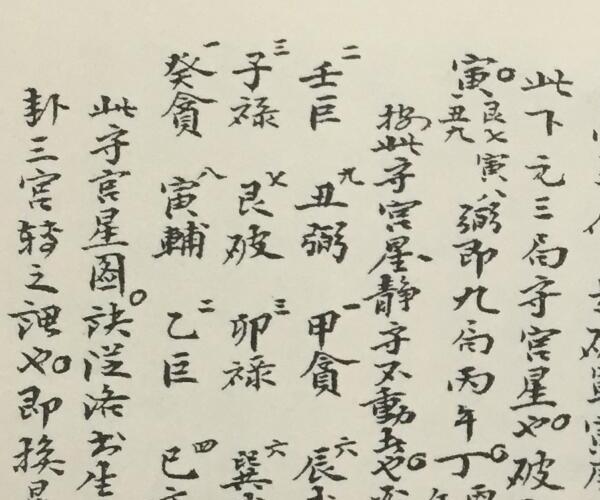 此下元三局守宮星也破
寅艮七寅八弼即九局丙午丁
丑九
按此守宮星静守不動者也
壬二巨 丑九弼 甲一貪 辰六
子三祿 艮七破 卯三祿 巽六
癸一貪 寅八輔 乙二巨 巳四
此守宮星图訣從洛书生
卦三宮轉之謂也即换星